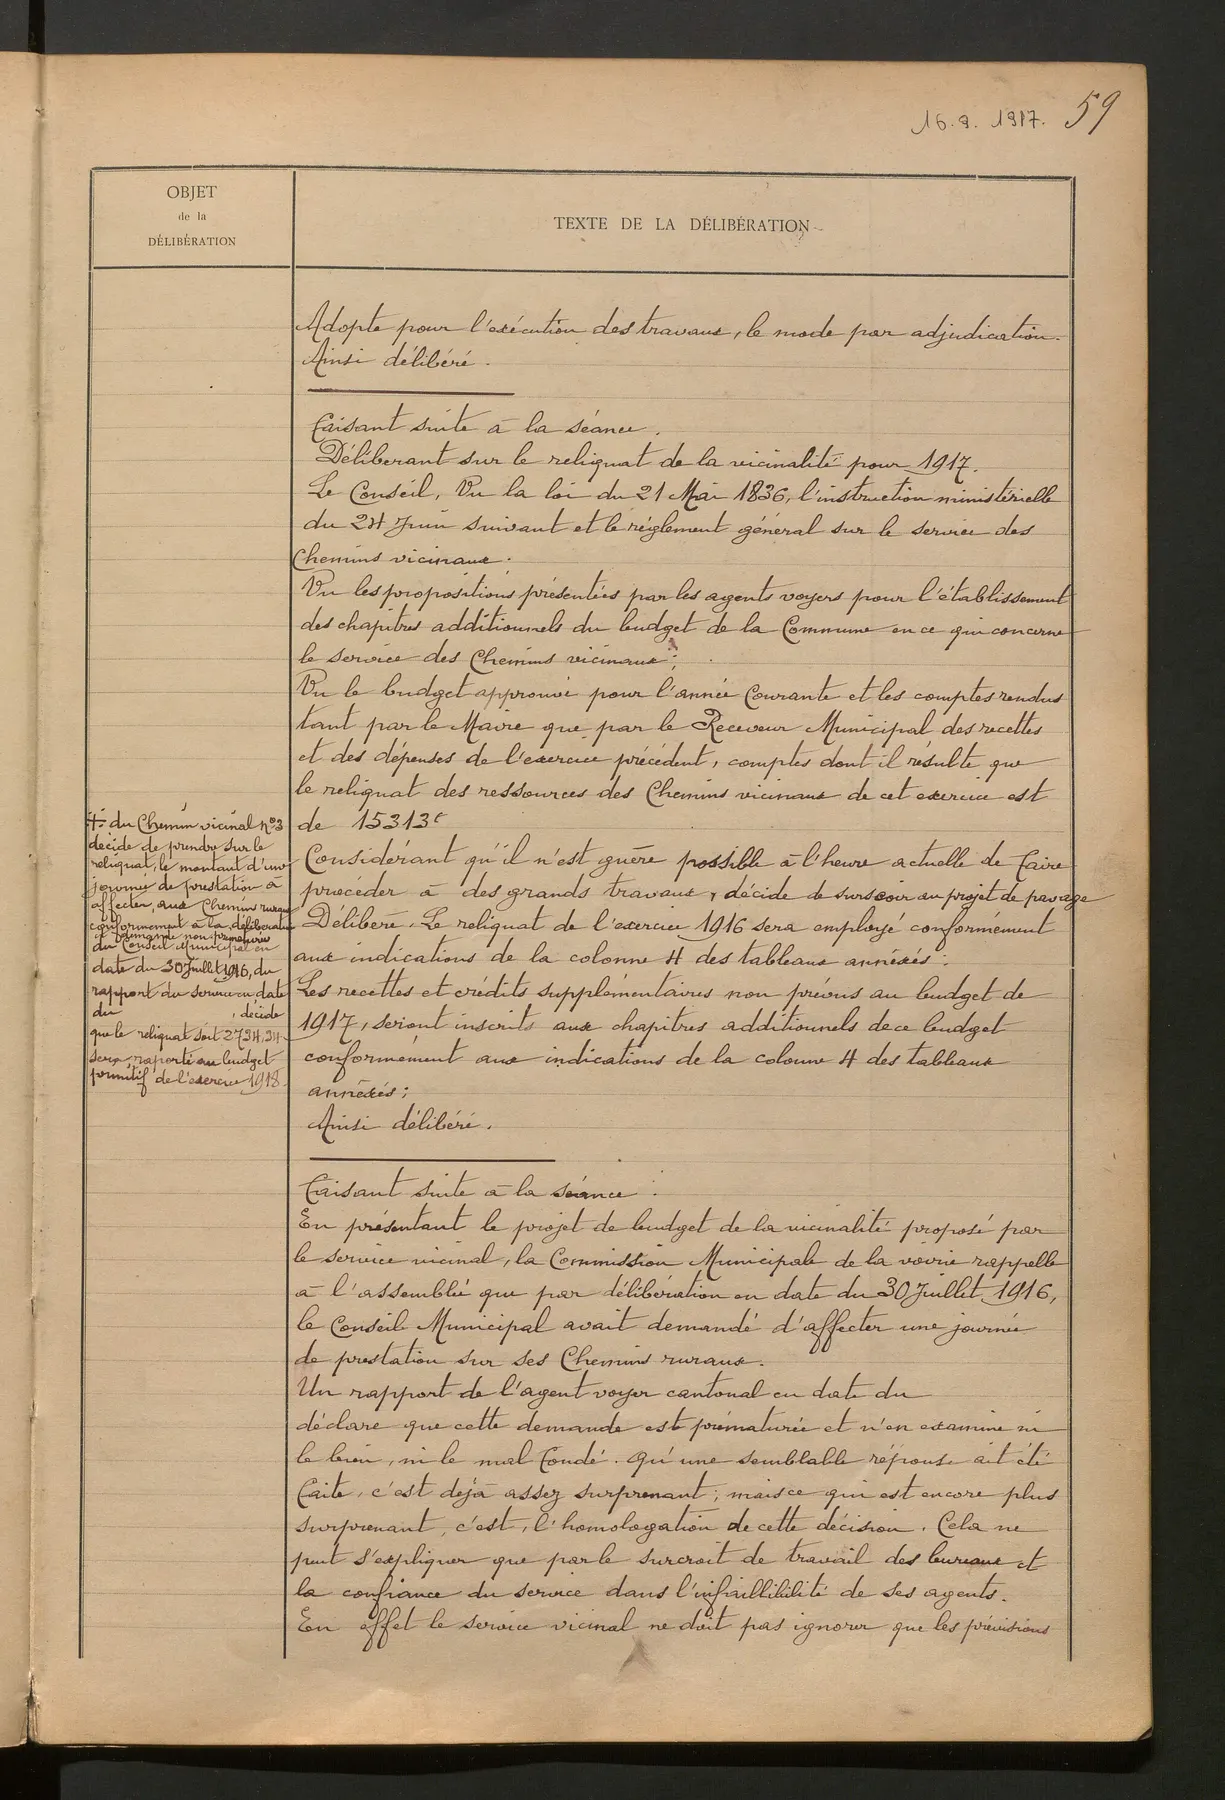 16.9.1917. 59
OBJET
de la
DÉLIBÉRATION
TEXTE DE LA DÉLIBÉRATION
Adopte pour l'exécution des travaux, le mode par adjudication.
Ainsi délibéré.
Faisant suite à la séance.
Déliberant sur le reliquat de la vicinalité pour 1917.
Le Conseil, Vu la loi du 21 Mai 1836, l'instruction ministérielle
du 24 Juin suivant et le réglement général sur le service des
Chemins vicinaux.
Vu les propositions présentées par les agents voyers pour l'établissement
des chapitres additionnels du budget de la Commune en ce qui concerne
le service des Chemins vicinaux;
Vu le budget approuvé pour l'année Courante et les comptes rendus
tant par le Maire que par le Receveur Municipal des recettes
et des dépenses de l'exercice précédent, comptes dont il résulte que
le reliquat des ressources des Chemins vicinaux de cet exercice est
de 15313f
Considérant qu'il n'est guère possible à l'heure actuelle de faire
proceder à des grands travaux, décide de surseoir au projet de pavage
Délibère. Le reliquat de l'exercice 1916 sera employé conformément
aux indications de la colonne 4 des tableaux annexés:
Les recettes et crédits supplémentaires non prévus au budget de
1917, seront inscrits aux chapitres additionnels de ce budget
conformément aux indications de la colonne 4 des tableaux
annexés;
Ainsi délibéré.
+ du Chemin vicinal no 3
décide de prendre sur le
reliquat, le montant d'une
journée de prestation à
affecter, aux Chemins ruraux
conformement à la délibération
et demande non prématurée
du Conseil Municipal en
date du 30 Juillet 1916, du
rapport du service en date
du , décide
que le reliquat soit 2734,34
sera raporté au budget
primitif de l'exercice 1918.
Faisant suite à la séance.
En présentant le projet de budget de la vicinalité proposé par
le service vicinal, la Commission Municipale de la voirie rappelle
à l'assemblée que par délibération en date du 30 Juillet 1916,
le Conseil Municipal avait demandé d'affecter une journée
de prestation sur ses Chemins ruraux.
Un rapport de l'agent voyer cantonal en date du
déclare que cette demande est prématurée et n'en examine ni
le bien, ni le mal fondé. Qu'une semblable réponse ait été
faite, c'est déjà assez surprenant; mais ce qui est encore plus
surprenant, c'est, l'homologation de cette décision. Cela ne
peut s'expliquer que par le surcroit de travail des bureaux et
la confiance du service dans l'infaillibilité de ses agents.
En effet le service vicinal ne doit pas ignorer que les prévisions